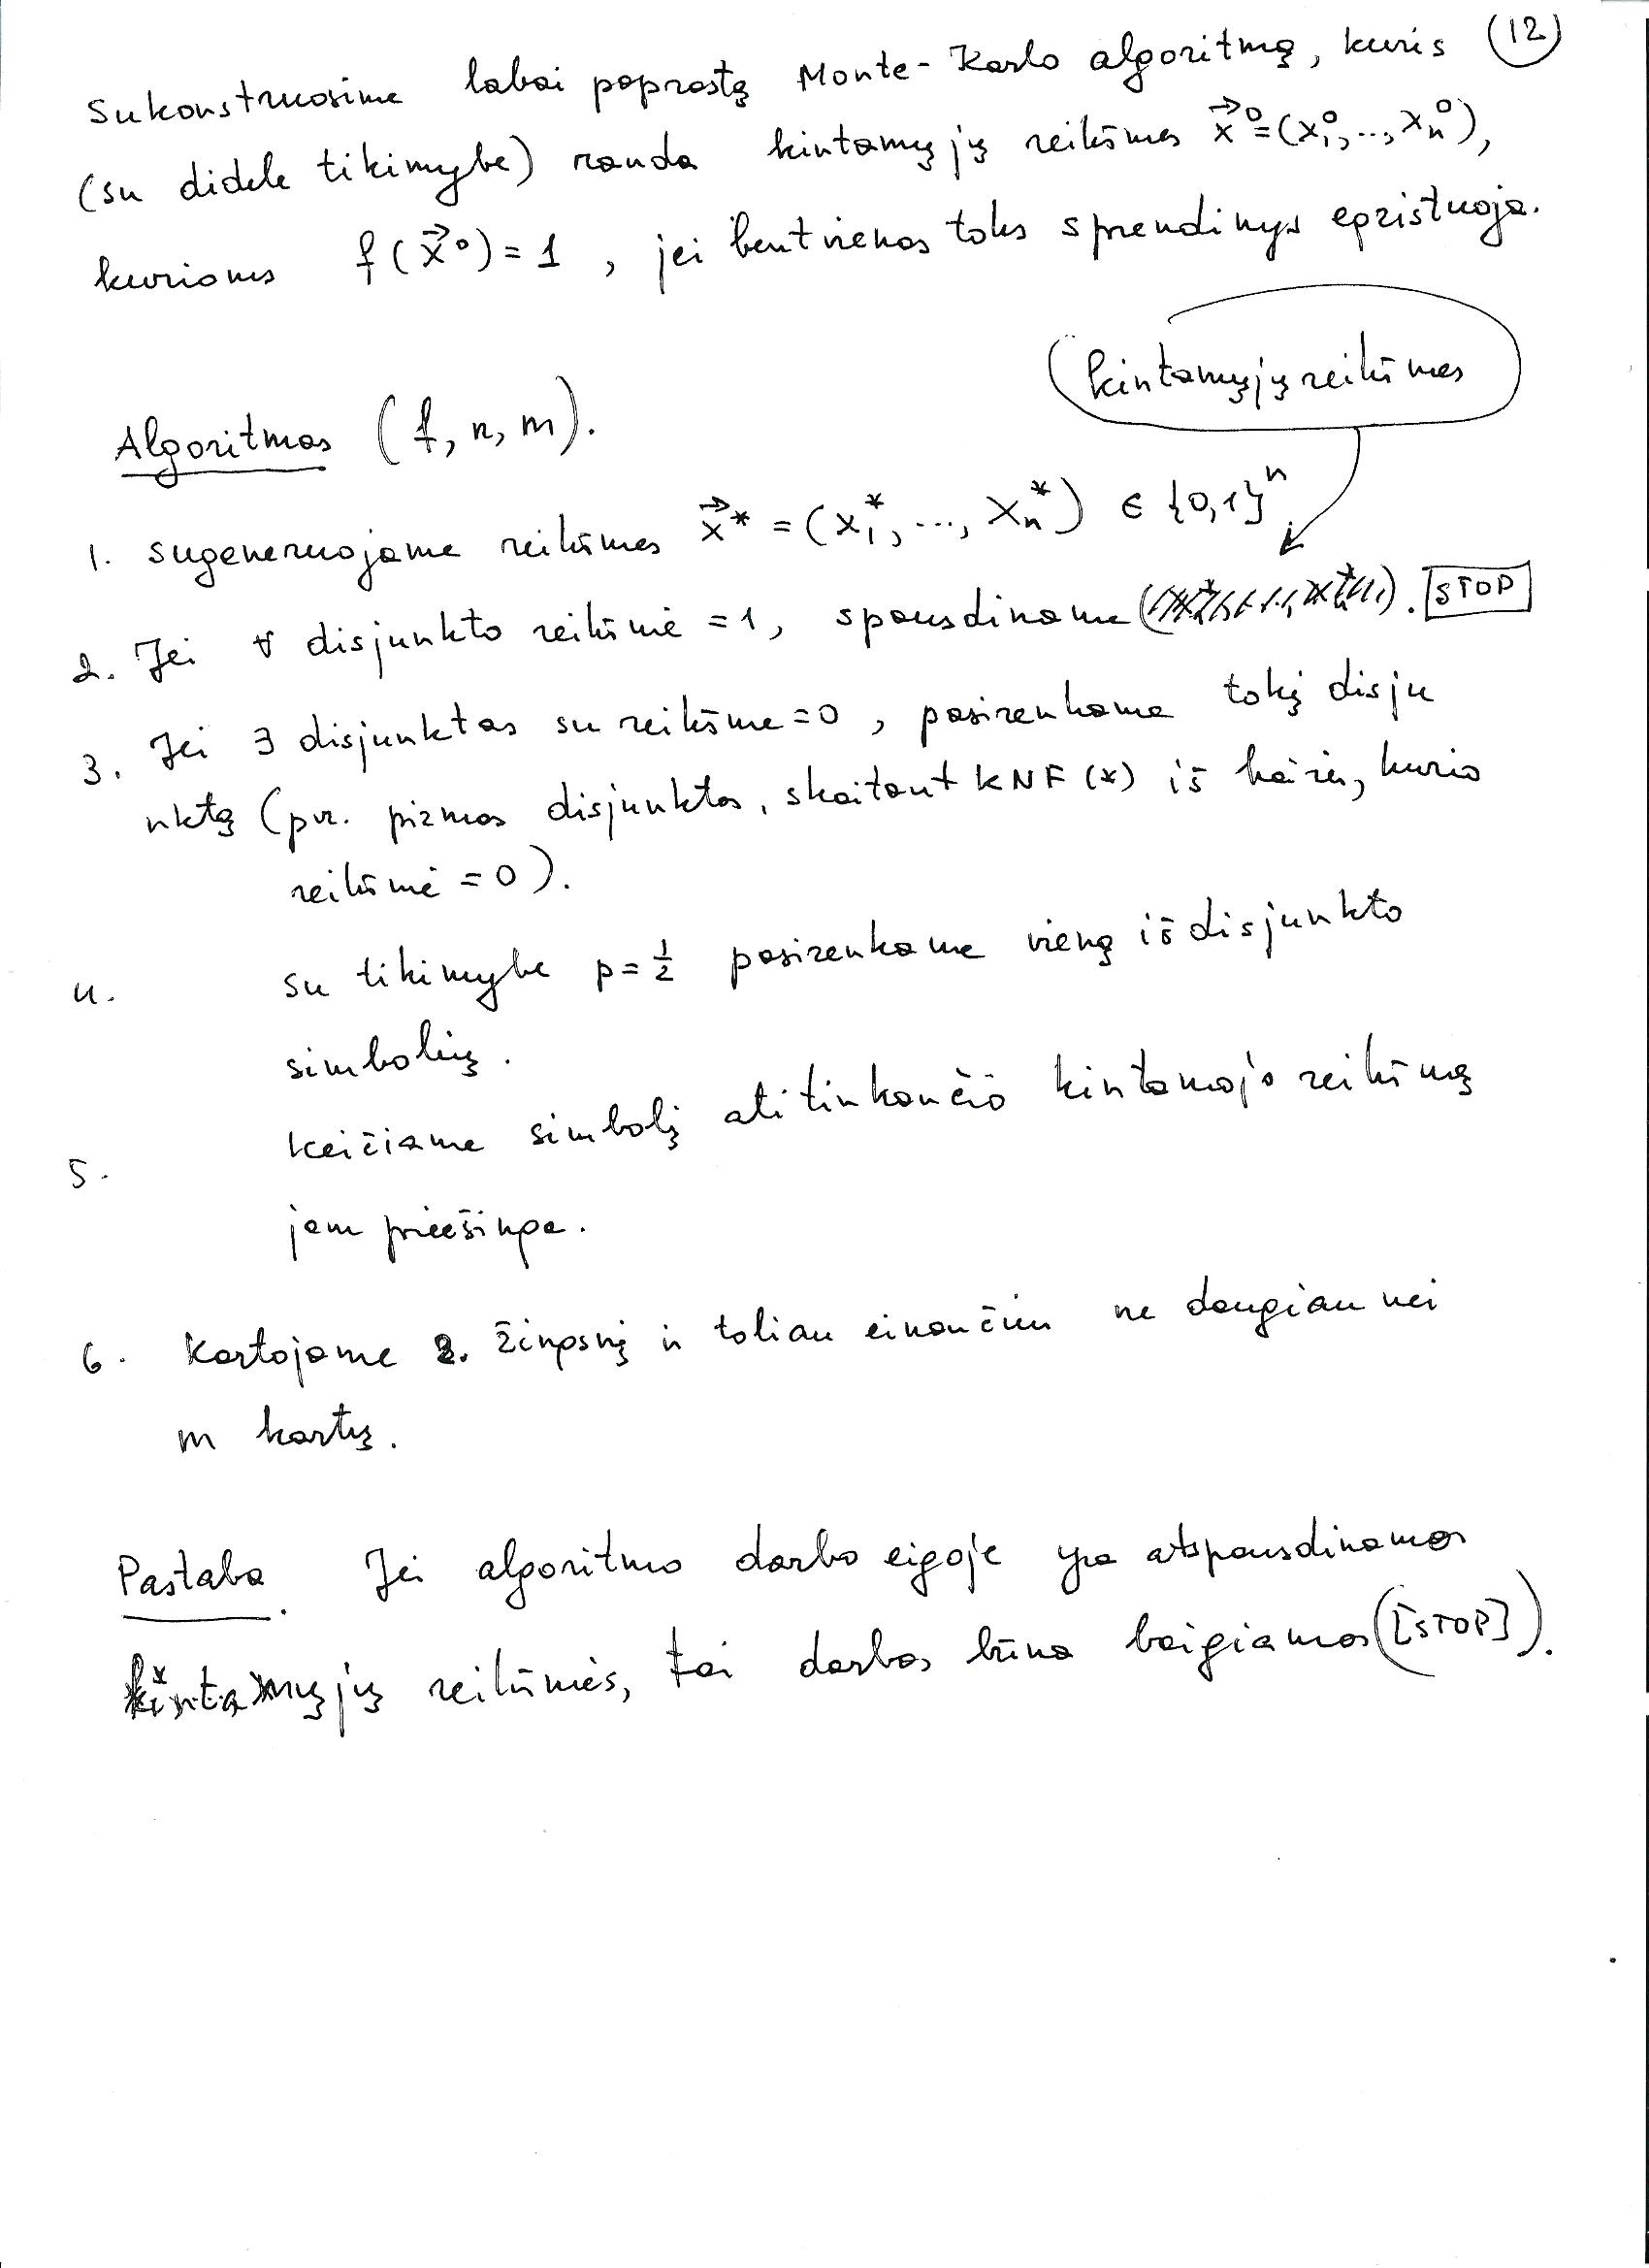 Sukonstruosime labai paprastą Monte-Karlo algoritmą, kuris (12)
(su didele tikimybe) randa kintamųjų reikšmes x⃗⁰=(x₁⁰,...,xₙ⁰),
kurioms f(x⃗⁰)=1, jei bent vienas toks sprendinys egzistuoja.
kintamųjų reikšmes
Algoritmas (f, n, m).
1. Sugeneruojame reikšmes x⃗* = (x₁*, ..., xₙ*) ∈ {0,1}ⁿ
2. Jei ∀ disjunkto reikšmė = 1, spausdiname . STOP
3. Jei ∃ disjunktas su reikšme = 0, pasirenkame tokį disju
nktą (pvz. pirmas disjunktas, skaitant KNF (*) iš kairės, kurio
reikšmė = 0).
4. su tikimybe p = 1/2 pasirenkame vieną iš disjunkto
simbolių.
5. Keičiame simbolį atitinkančio kintamojo reikšmę
jam priešinga.
6. Kartojame 2. žingsnį ir toliau einančius ne daugiau nei
m kartų.
Pastaba. Jei algoritmo darbo eigoje yra atspausdinamos
kintamųjų reikšmės, tai darbas būna baigiamas ([STOP]).